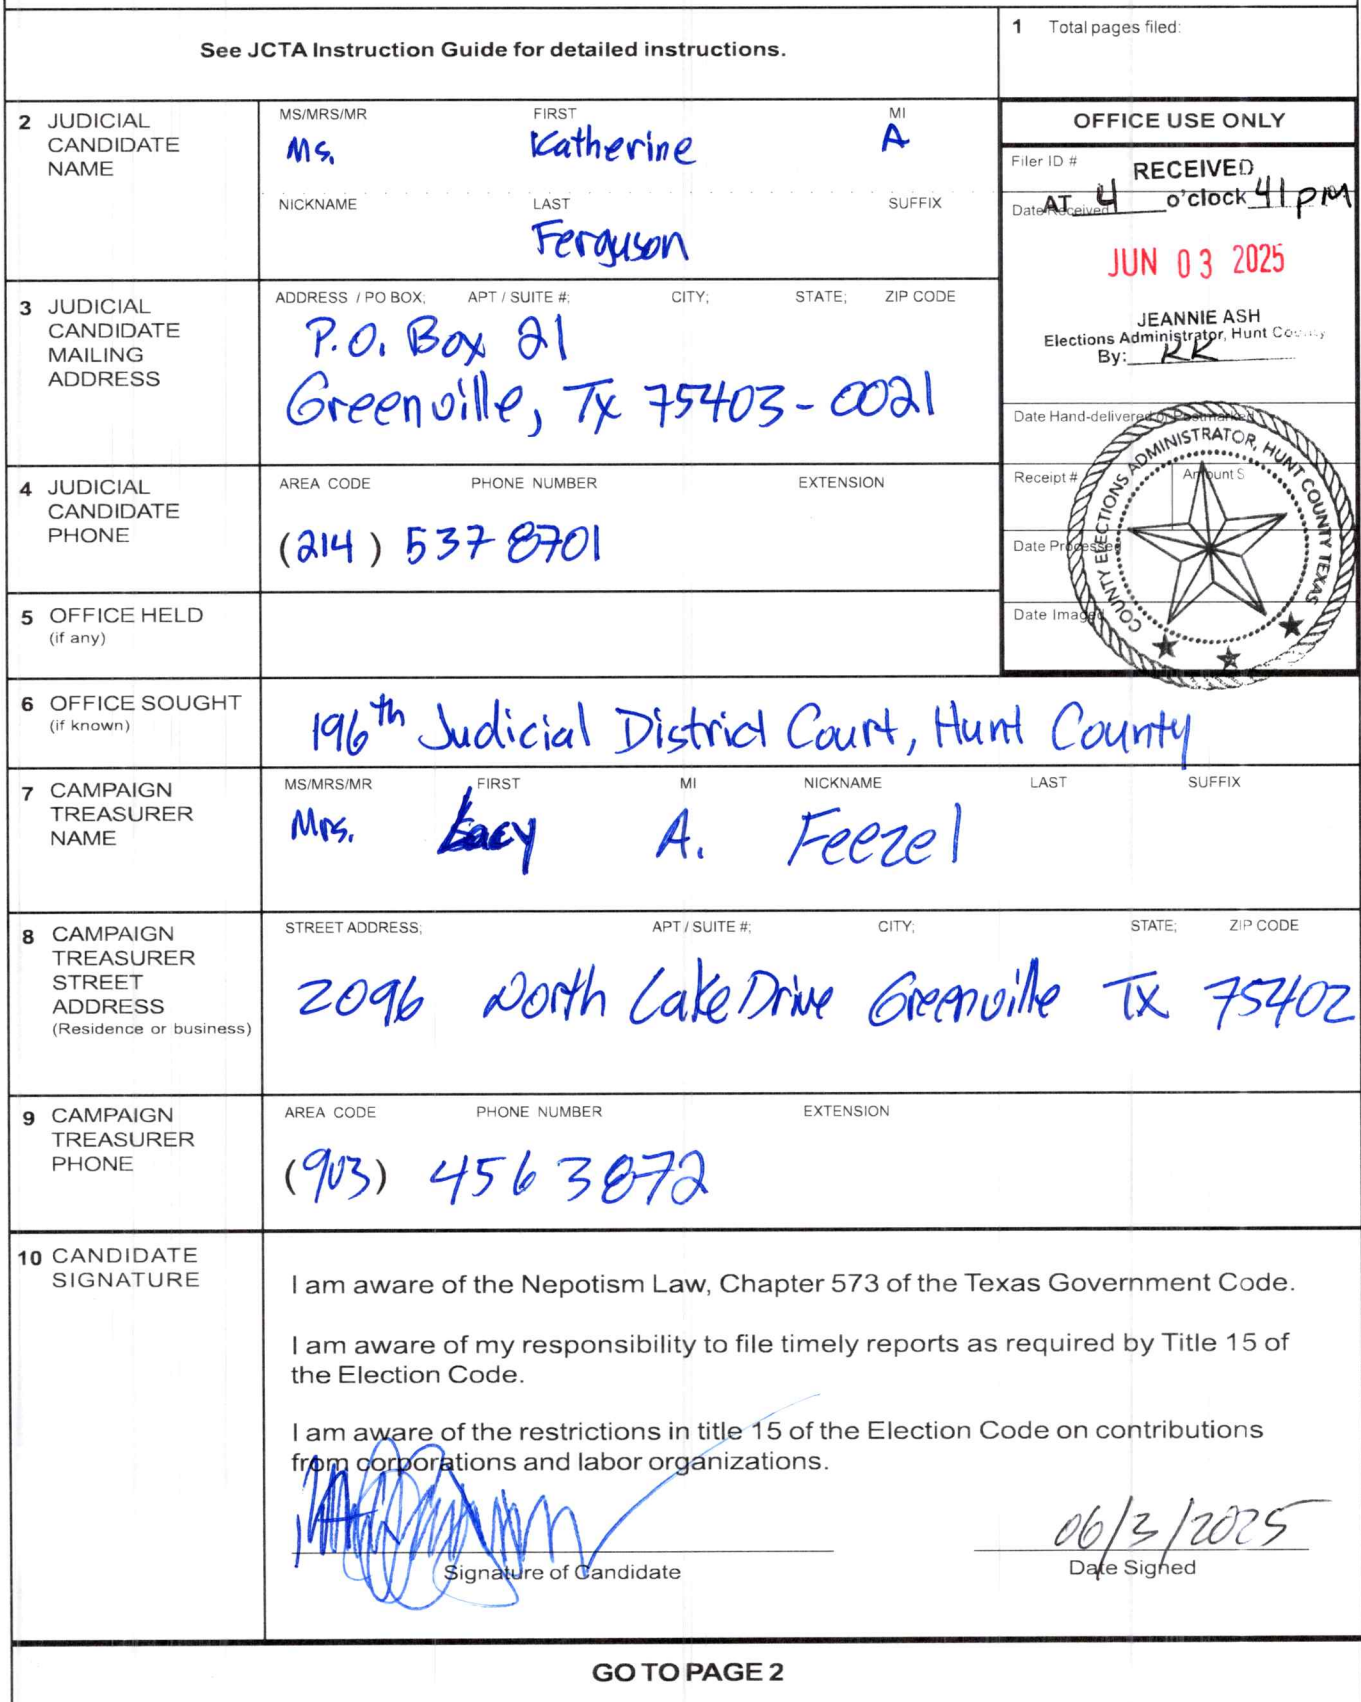 See JCTA Instruction Guide for detailed instructions.
1 Total pages filed:
2 JUDICIAL CANDIDATE NAME
MS/MRS/MR FIRST MI
Ms. Katherine A
NICKNAME LAST SUFFIX
Ferguson
OFFICE USE ONLY
Filer ID #
RECEIVED
AT 4 o'clock 41 pm
Date Received
JUN 03 2025
JEANNIE ASH
Elections Administrator, Hunt County
By: KK
Date Hand-delivered or Postmarked
Receipt # Amount $
Date Processed
Date Imaged
COUNTY ELECTIONS ADMINISTRATOR, HUNT COUNTY TEXAS
3 JUDICIAL CANDIDATE MAILING ADDRESS
ADDRESS / PO BOX; APT / SUITE #; CITY; STATE; ZIP CODE
P.O. Box 21
Greenville, Tx 75403-0021
4 JUDICIAL CANDIDATE PHONE
AREA CODE PHONE NUMBER EXTENSION
(214) 537 8701
5 OFFICE HELD
(if any)
6 OFFICE SOUGHT
(if known)
196th Judicial District Court, Hunt County
7 CAMPAIGN TREASURER NAME
MS/MRS/MR FIRST MI NICKNAME LAST SUFFIX
Mrs. Lacy A. Feezel
8 CAMPAIGN TREASURER STREET ADDRESS
(Residence or business)
STREET ADDRESS; APT / SUITE #; CITY; STATE; ZIP CODE
2096 North Lake Drive Greenville TX 75402
9 CAMPAIGN TREASURER PHONE
AREA CODE PHONE NUMBER EXTENSION
(903) 456 3872
10 CANDIDATE SIGNATURE
I am aware of the Nepotism Law, Chapter 573 of the Texas Government Code.
I am aware of my responsibility to file timely reports as required by Title 15 of
the Election Code.
I am aware of the restrictions in title 15 of the Election Code on contributions
from corporations and labor organizations.
06/3/2025
Signature of Candidate Date Signed
GO TO PAGE 2